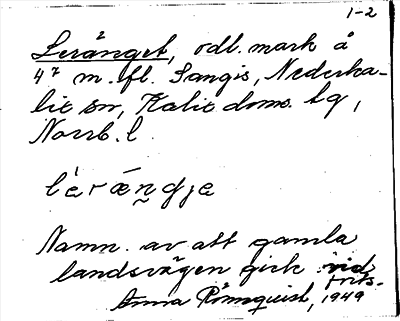 1-2
Leränget, odl. mark å
4⁷ m. fl. Sangis, Nederka-
lix sn, Kalix doms. lg,
Norrb. l
lerängje
Namn. av att gamla
landsvägen gick vid
Anna Rönnquist, 1949